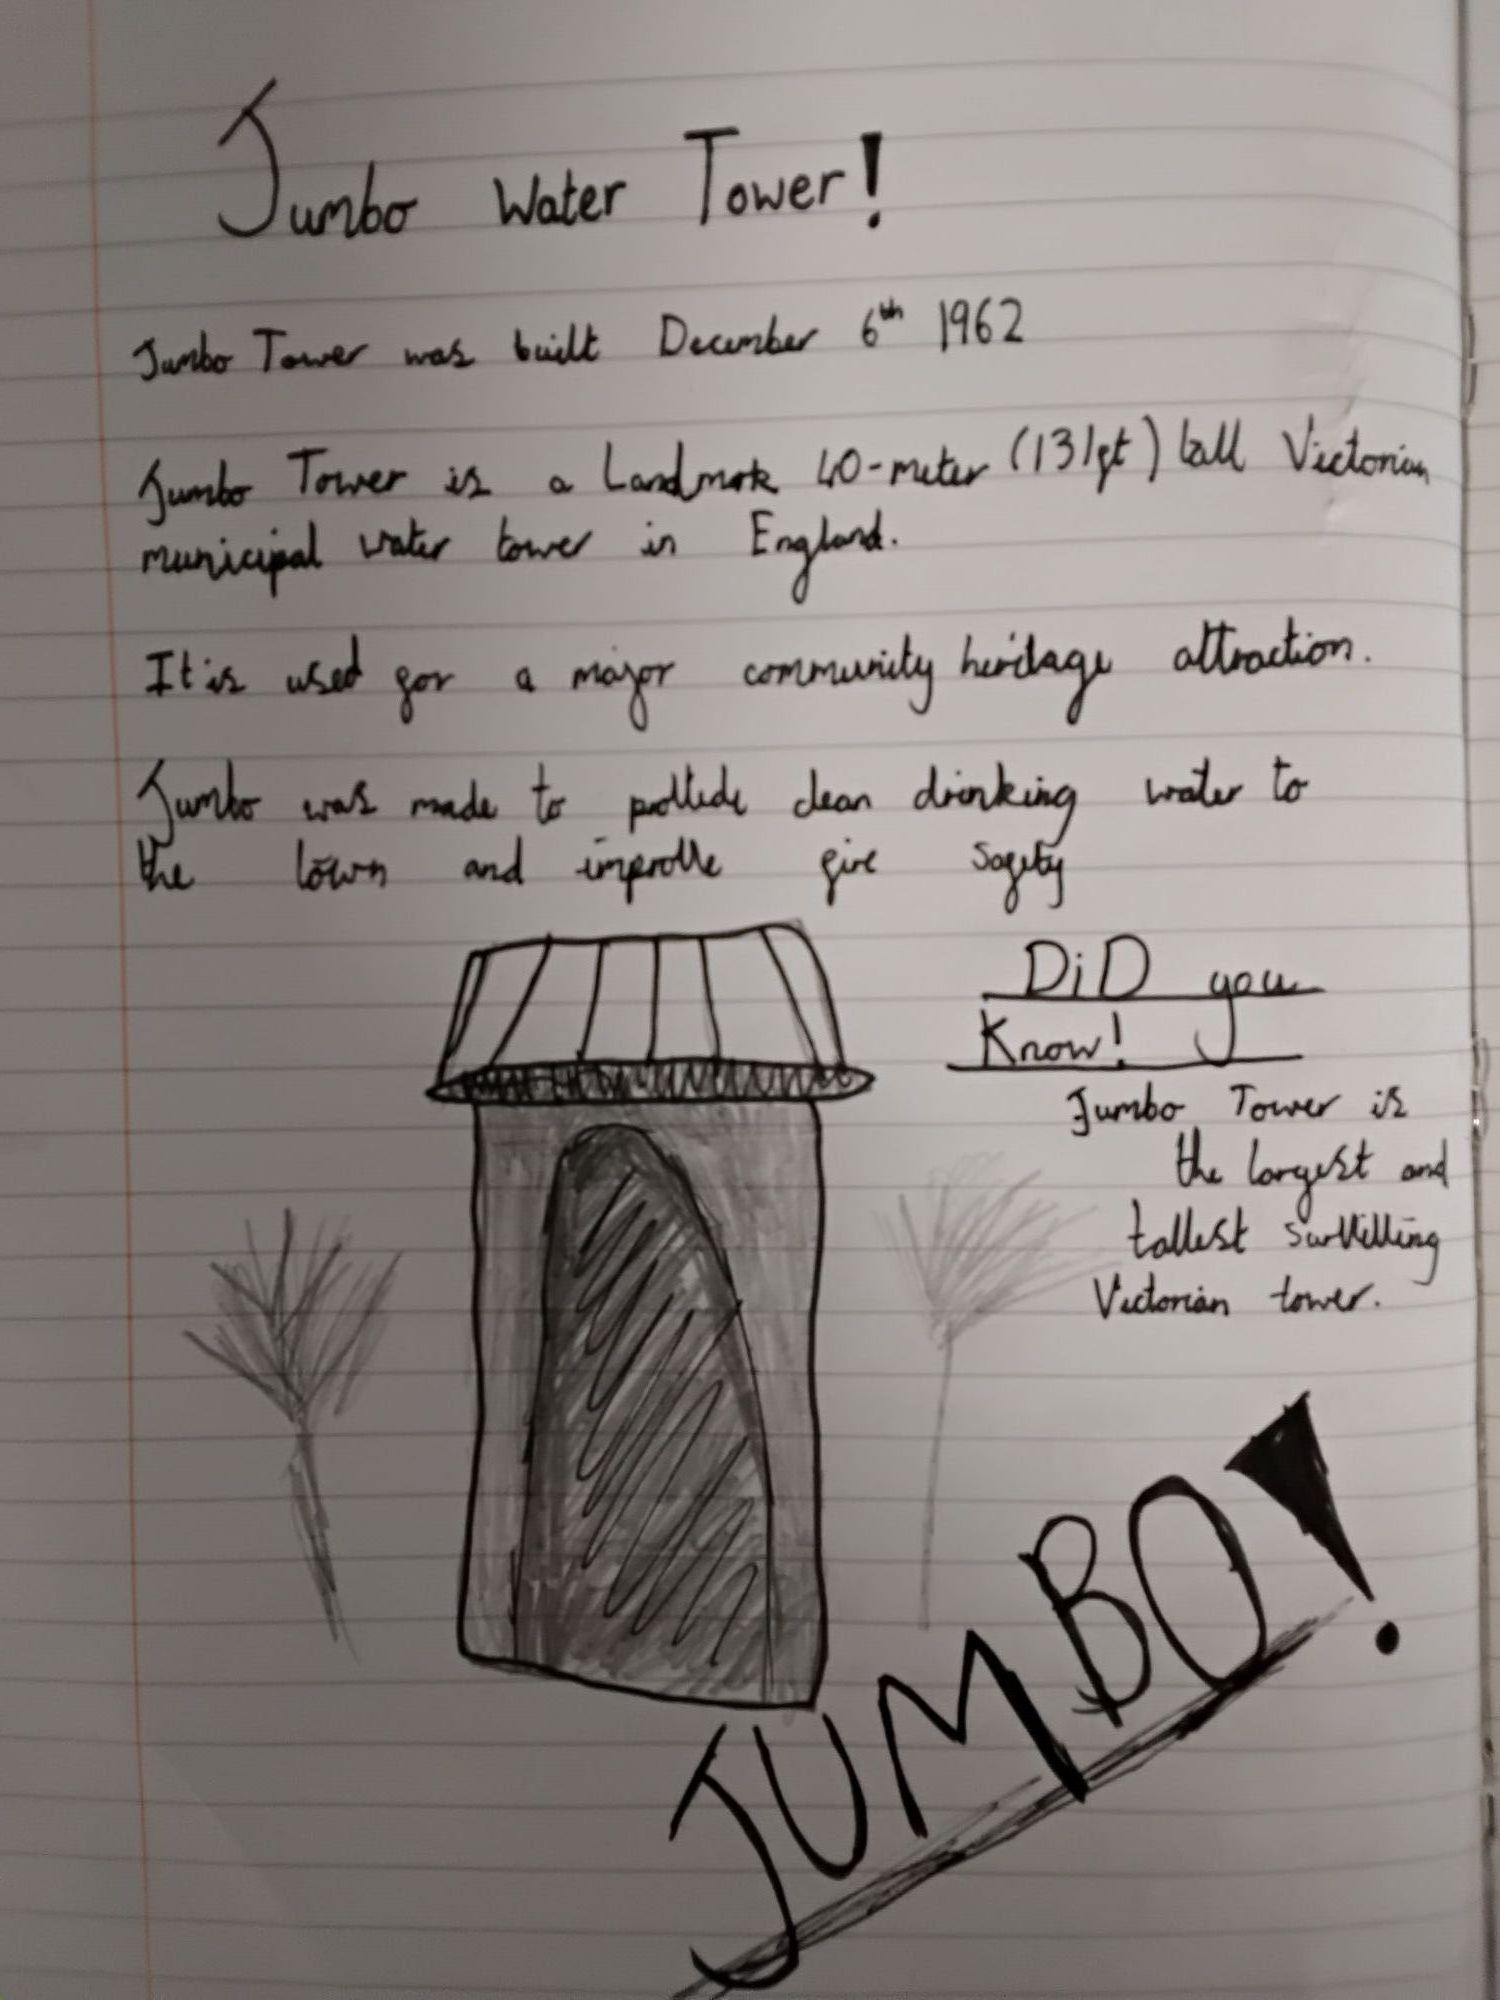 Jumbo Water Tower!
Jumbo Tower was built December 6th 1962
Jumbo Tower is a Landmark 40-meter (131ft) tall Victorian
municipal water tower in England.
It is used for a major community heritage attraction.
Jumbo was made to provide clean drinking water to
the town and improve fire safety
DiD you
Know!
Jumbo Tower is
the largest and
tallest surviving
Victorian tower.
JUMBO!